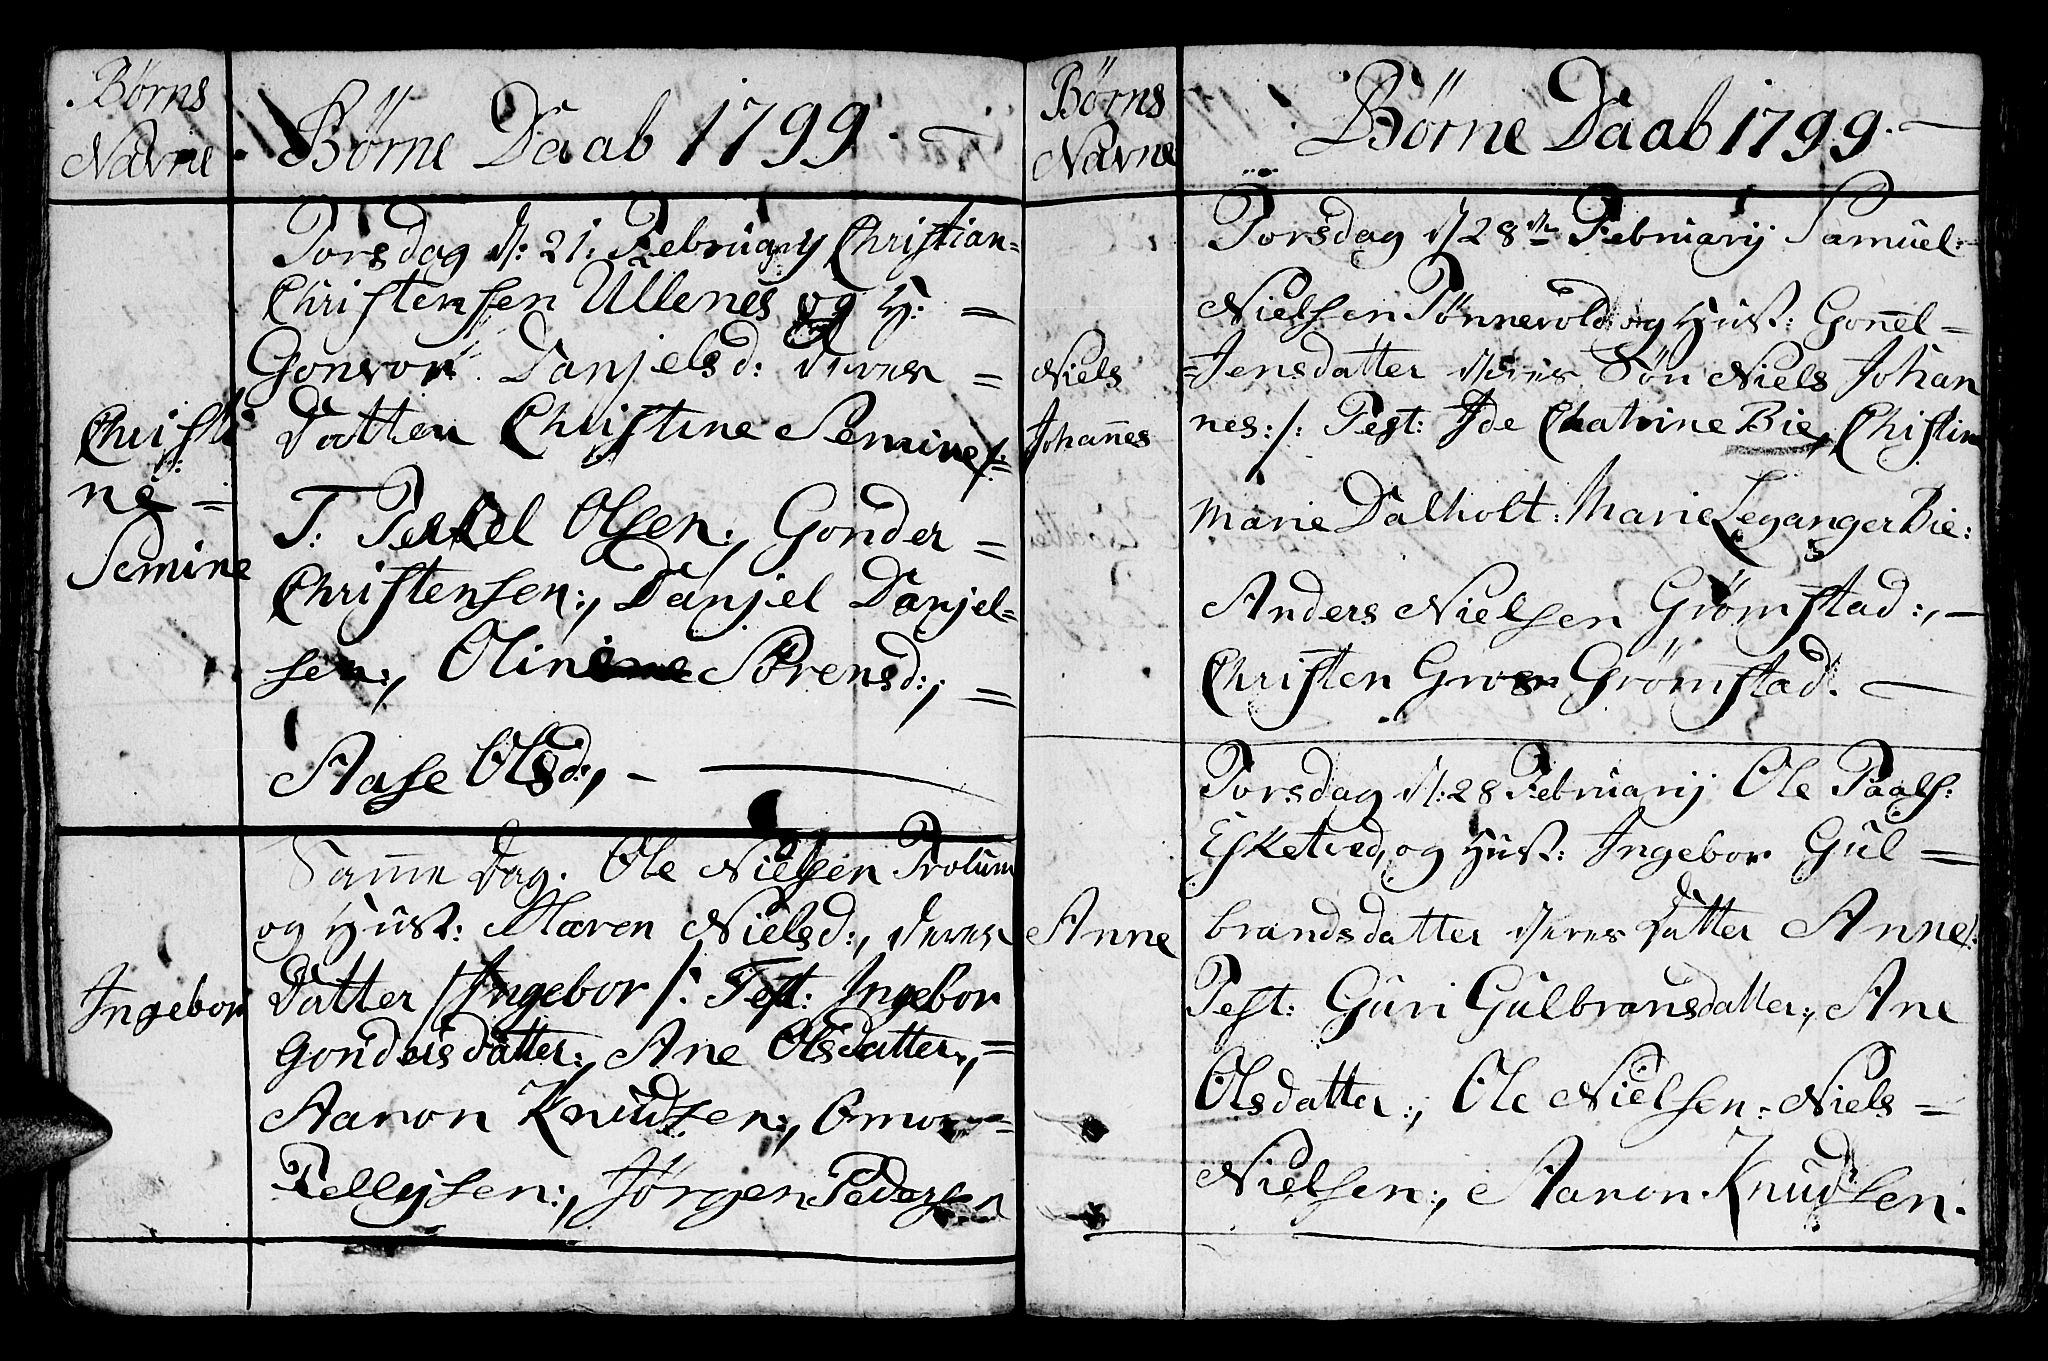 Børns
Navne
Børne Daab 1799.
Torsdag d: 21: February Christian=
Christensen Ullenes og H: =
Gonvor Danjelsd: deres =
Datter Christine Semine /:
T: Terkel Olsen:, Gonder =
Christensen:, Danjel Danjel=
sen:, Oline Sørensd:, =
Aase Olsd:, -
Christi
ne =
Semine
Samme Dag. Ole Nielsen
og Hust: Maren Nielsd:, deres
Datter /: Ingebor /: Test: Ingebor
Gondersdatter:, Ane Olsdatter:, =
Aanon Knudsen:, Omon =
Tellejsen:, Jørgen Pedersen
Ingebor
Børns
Navne
Børne Daab 1799.
Torsdag d 28de February Samuel
Nielsen Tønnevold og Hust: Gonnel =
=Jensdatter deres Søn Niels Johan
nes: /: Test: Ide Chatrine Bie, Christine
Marie Dalholt: Marie Leganger Bie:
Anders Nielsen Grømstad:, -
Christen Gros Grømstad. -
Niels
Johannes
Torsdag d: 28 February Ole Paals:
Esketved, og Hust: Ingebor Gul =
brandsdatter deres Datter Anne /:
Test: Guri Gulbransdatter:, Ane
Olsdatter:, Ole Nielsen: Niels =
Nielsen:, Aanon Knudsen.
Anne